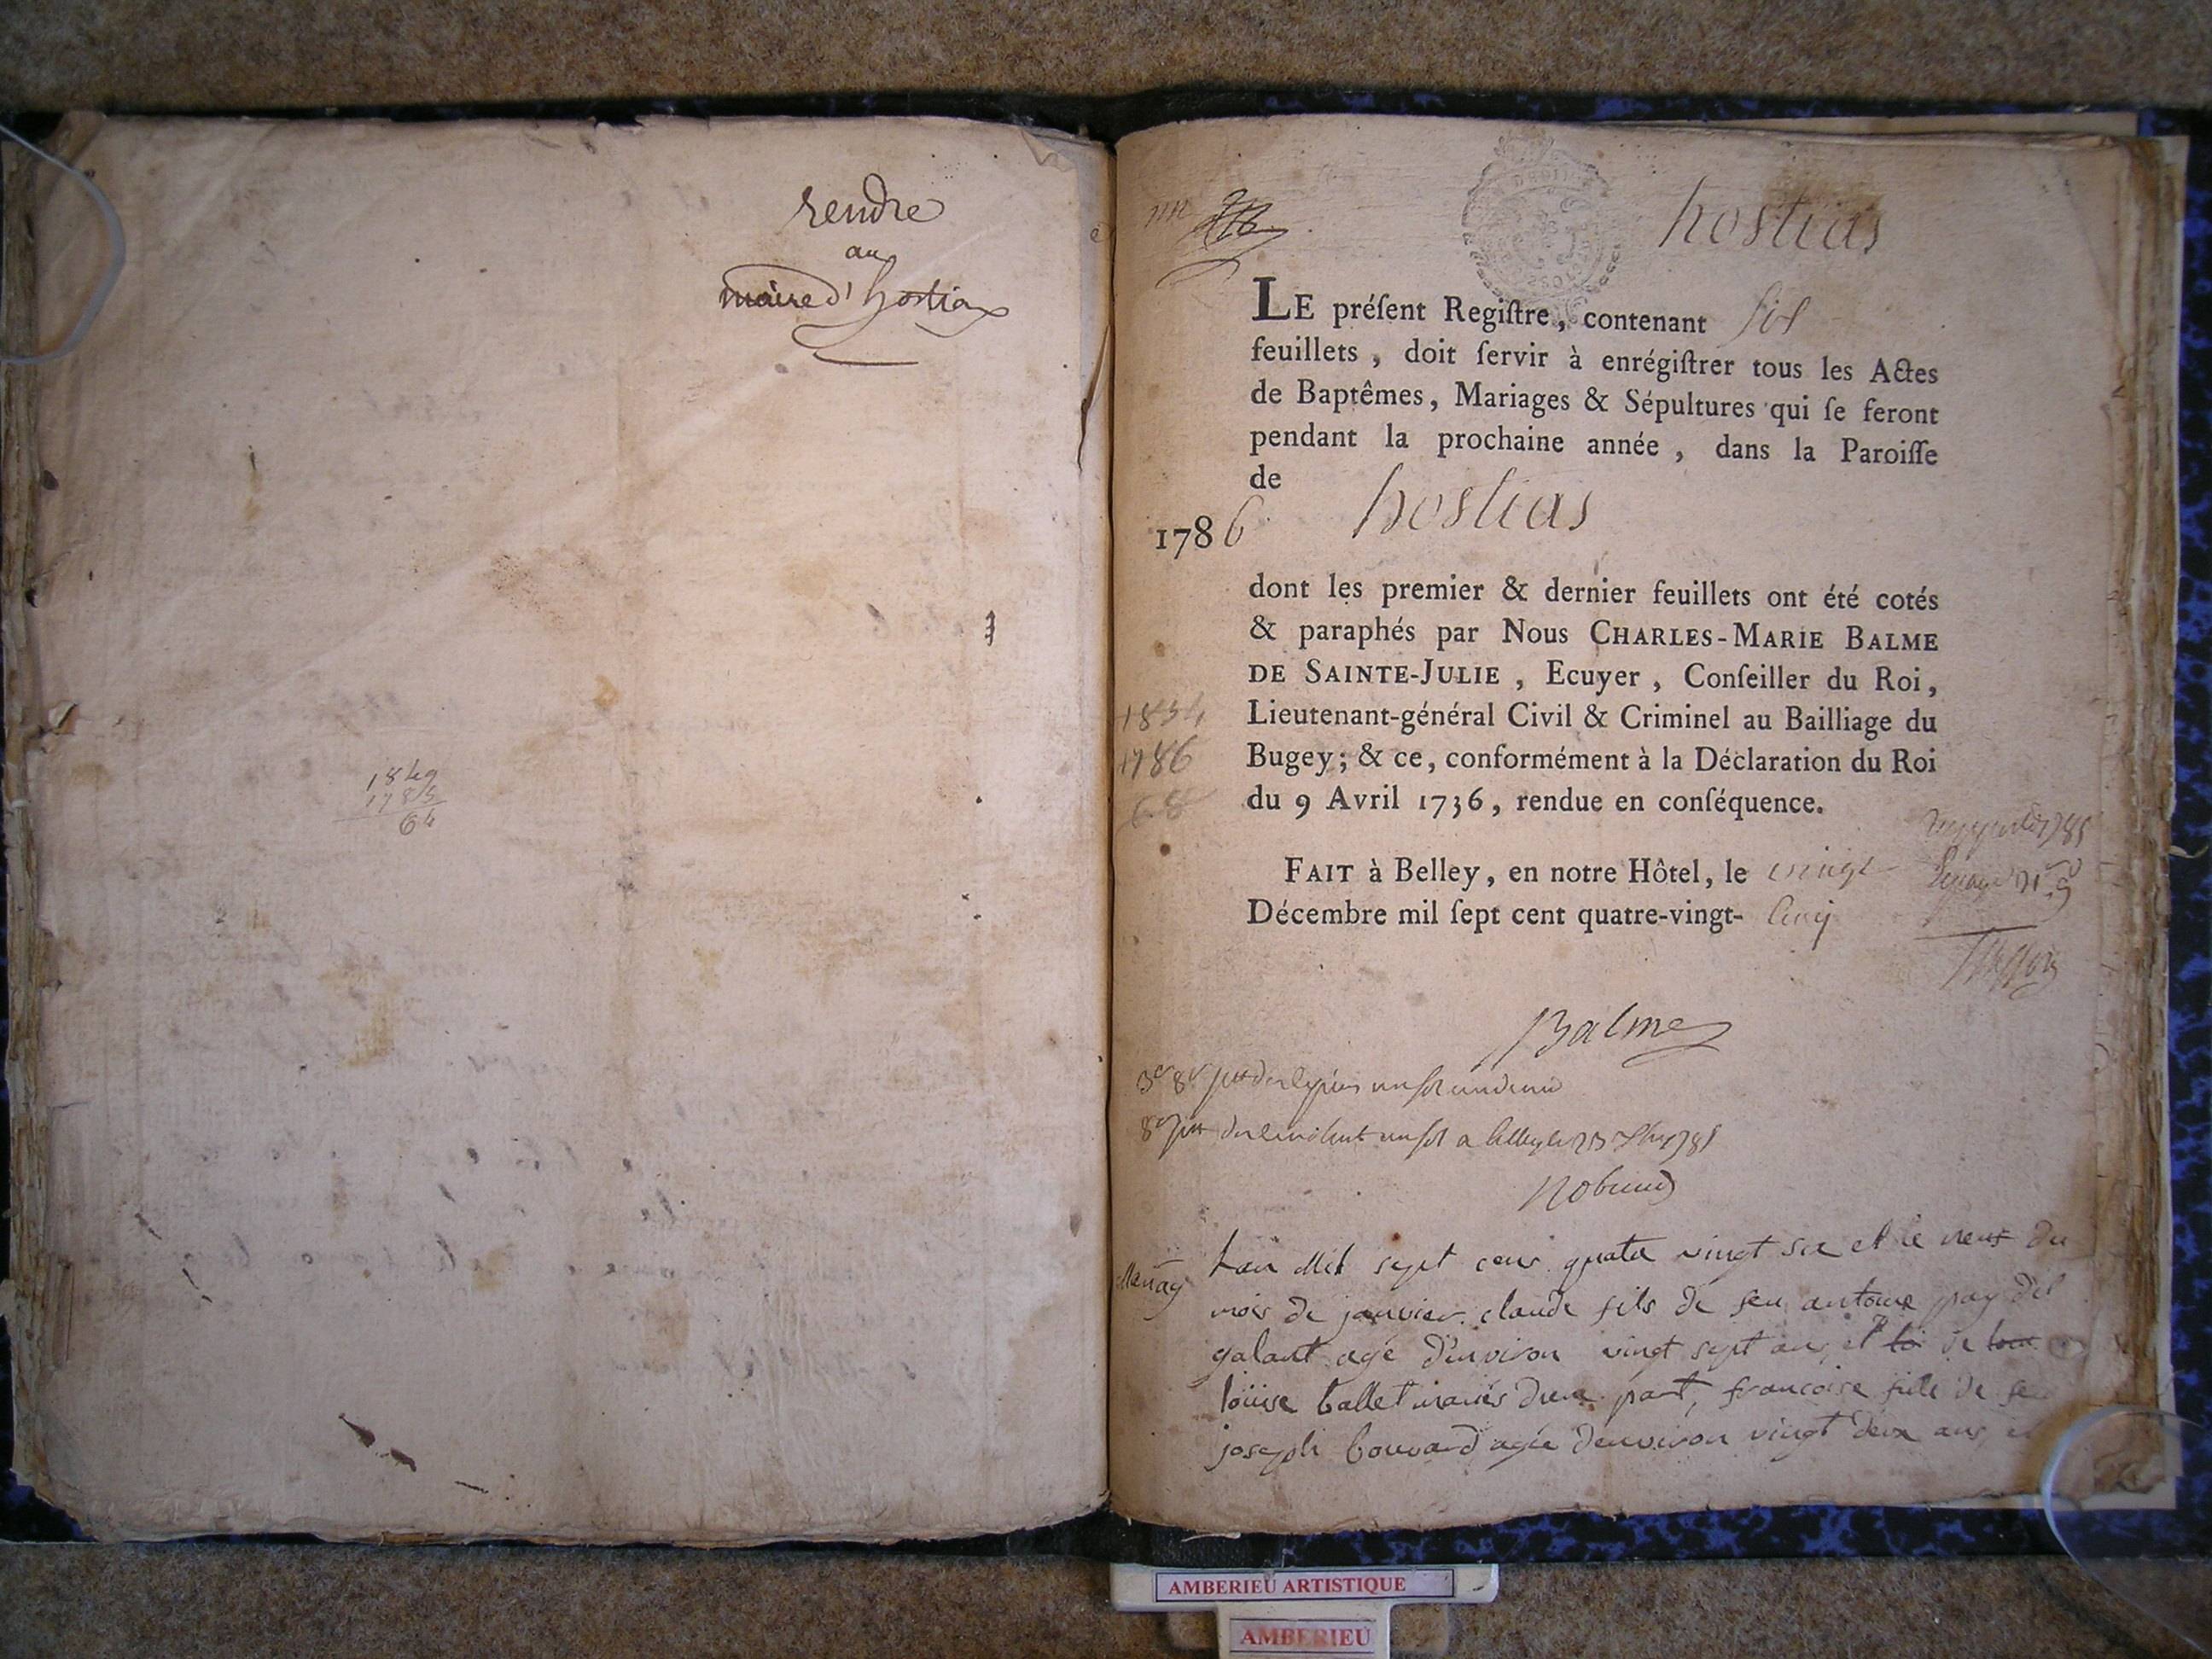 rendre
au
maire d'hostias
1849
1785
64
hostias
LE préſent Regiſtre, contenant six
feuillets, doit ſervir à enrégiſtrer tous les Actes
de Baptêmes, Mariages & Sépultures qui ſe feront
pendant la prochaine année, dans la Paroiſſe
de
1786 hostias
dont les premier & dernier feuillets ont été cotés
& paraphés par Nous CHARLES-MARIE BALME
DE SAINTE-JULIE, Ecuyer, Conſeiller du Roi,
Lieutenant-général Civil & Criminel au Bailliage du
Bugey; & ce, conformément à la Déclaration du Roi
du 9 Avril 1736, rendue en conſéquence.
1834
1786
68
FAIT à Belley, en notre Hôtel, le vingt
Décembre mil ſept cent quatre-vingt- cinq
Balme
Mariag
Lan Mil sept cens quatre vingt six et le neuf du
mois de janvier claude fils de feu antoine
galant agé d'environ vingt sept ans et de
loüise ballet mariés d'une part, francoise fille de feu
joseph bouvard agée denviron vingt deux ans et
AMBERIEU ARTISTIQUE
AMBERIEU